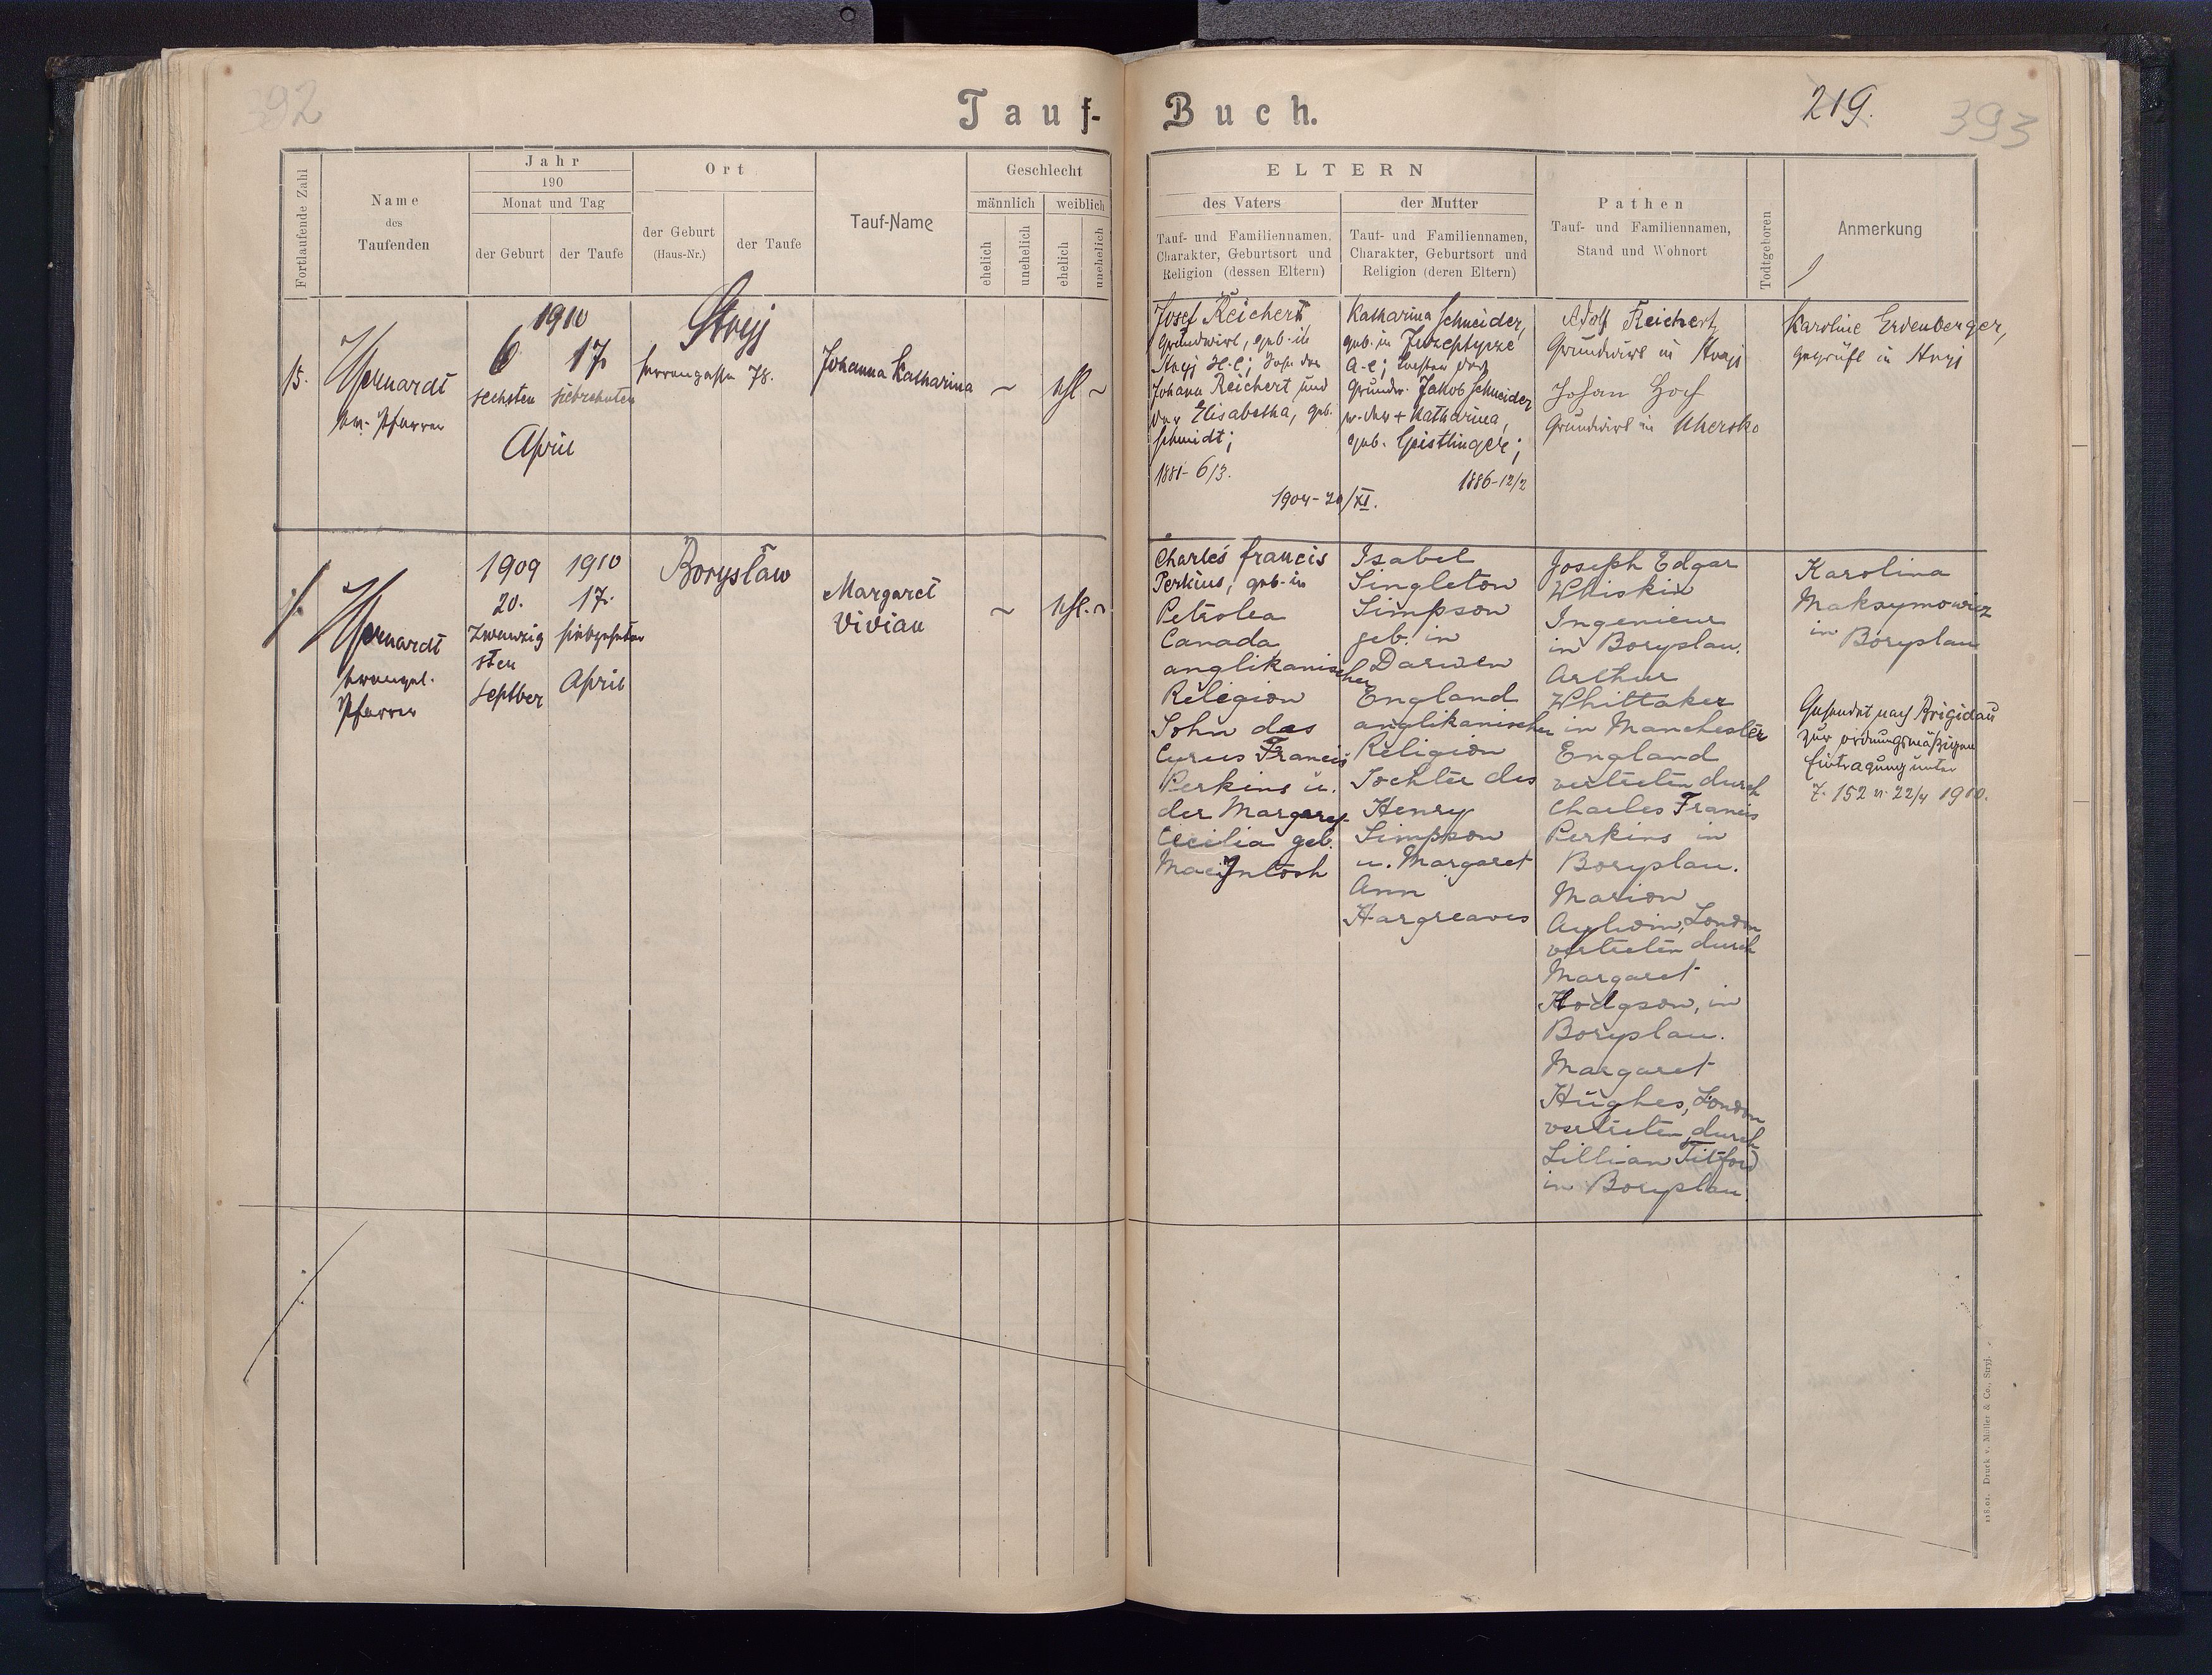 392
Tauf-Buch.
219.
393
Fortlaufende Zahl
Name
des
Taufenden
Jahr
190
Monat und Tag
der Geburt
der Taufe
Ort
der Geburt
(Haus-Nr.)
der Taufe
Tauf-Name
Geschlecht
männlich
weiblich
ehelich
unehelich
ehelich
unehelich
ELTERN
des Vaters
Tauf- und Familiennamen,
Charakter, Geburtsort und
Religion (dessen Eltern)
der Mutter
Tauf- und Familiennamen,
Charakter, Geburtsort und
Religion (deren Eltern)
Pathen
Tauf- und Familiennamen,
Stand und Wohnort
Todtgeboren
Anmerkung
15.
Pfarrer
1910
6
17.
sechsten
siebzehnten
April
Stryj
78.
Johanna Katharina
~
ehl ~
Josef Reichert
Grundwirt, geb. in
Stryj H.C; Sohn des
Johann Reichert und
der Elisabetha, geb.
Schmidt;
1881-6/3.
Katharina Schneider,
geb. in
A.C; Tochter des
Grundw. Jakob Schneider
u. der + Katharina,
geb. Geistlinger;
1886-12/2
Adolf Reichert,
Grundwirt in Stryj
Johan Hof
Grundwirt in Uhersko
Karoline Erdenberger,
geprüft in Stryj
%
evangel.
Pfarrer
1909
20.
zwanzig
sten
Septber
1910
17.
siebzehnten
April
Borysław
Margaret
Vivian
~
ehl. ~
Charles Francis
Perkins, geb. in
Petrolea
Canada
anglikanischer
Religion
Sohn des
Cyrus Francis
Perkins u.
der Margaret
Cecilia geb.
MacIntosh
Isabel
Singleton
Simpson
geb. in
Darwen
England
anglikanischer
Religion
Tochter des
Henry
Simpson
u. Margaret
Ann
Hargreaves
Joseph Edgar
Whiskin
Ingenieur
in Boryslau.
Arthur
Whittaker
in Manchester
England
vertreten durch
Charles Francis
Perkins in
Boryslau.
Marion
Aylwin, London
vertreten durch
Margaret
Hodgson, in
Boryslau.
Margaret
Hughes, London
vertreten durch
Lillian Titford
in Boryslau.
Karolina
Maksymowicz
in Boryslau
Gesendet nach Brigidau
zur ordnungsmäßigen
Eintragung unter
Z. 152 v. 22/4 1910.
118.01. Druck v. Müller & Co., Stryj.